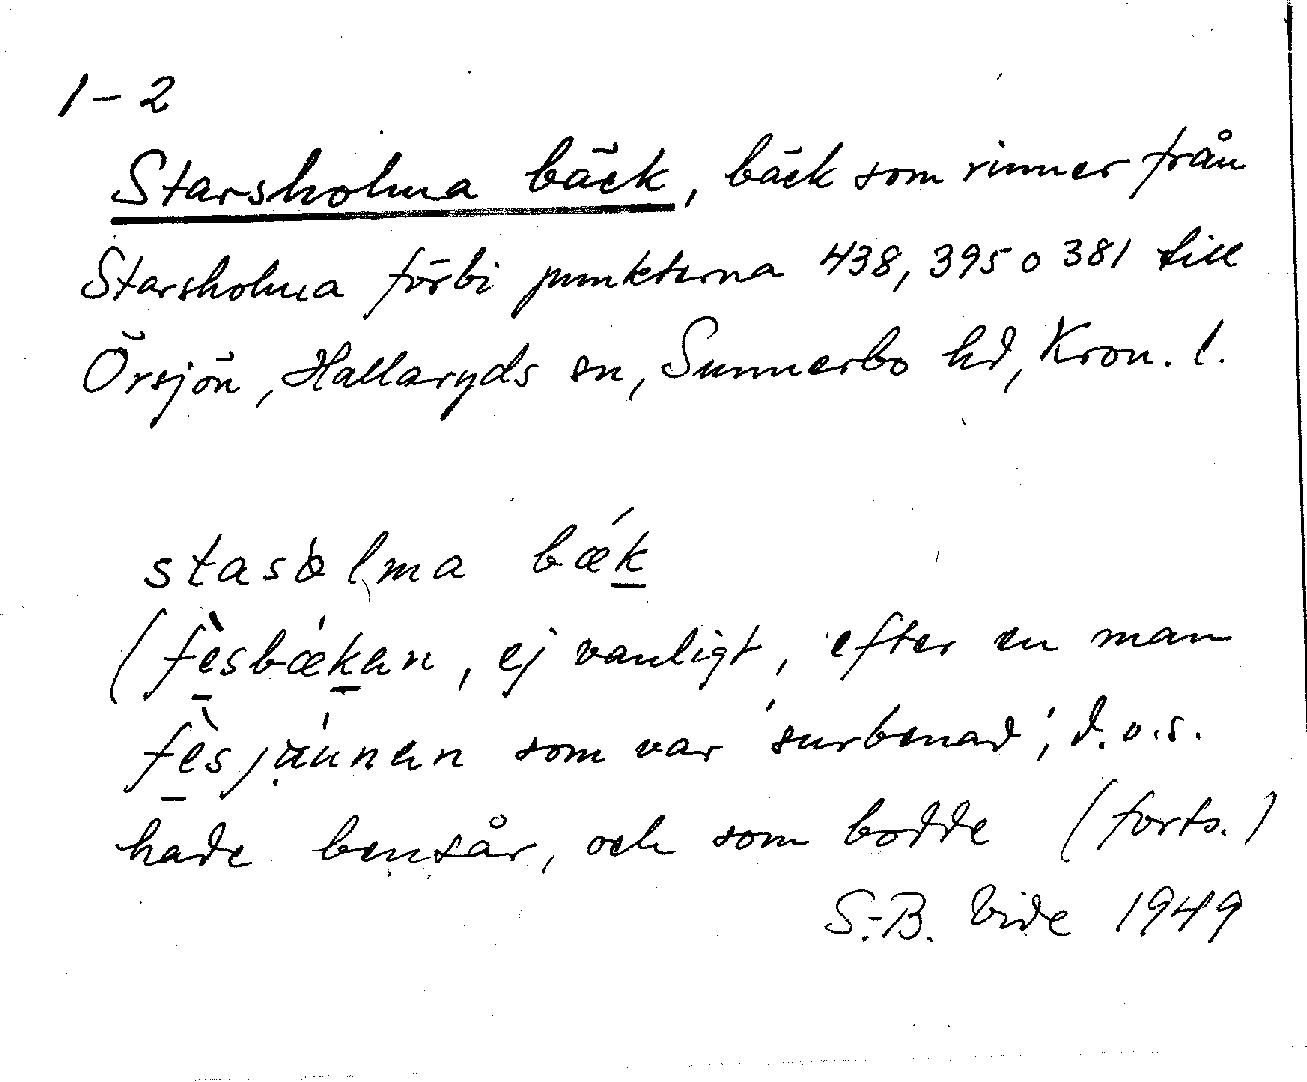 1-2
Starsholma bäck, bäck som rinner från
Starsholma förbi punkterna 438, 395 o 381 till
Örsjön, Hallaryds sn, Sunnerbo hd, Kron. l.
stasòlma bǽk
(fèsbǽkan, ej vanligt, efter en man
fèsjäunen som var 'surbenad', d.v.s.
hade bensår, och som bodde (forts.)
S.-B. Vide 1949